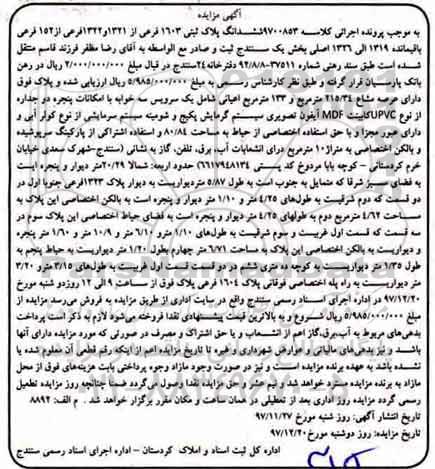 آگهی مزایده
به موجب پرونده اجرائی کلاسه ۹۷۰۰۸۵۳ ششدانگ پلاک ثبتی ۱۶۰۳ فرعی از ۱۳۲۱و۱۳۲۲ فرعی از۱۵۲ فرعی
باقیمانده ۱۳۱۹ الی ۱۳۲۶ اصلی بخش یک سنندج ثبت و صادر مع الواسطه به آقای رضا مظفر فرزند قاسم منتقل
شده است طبق سند رهنی شماره ۳۷۵۱۱-۹۲/۸/۸ دفترخانه۲۴سنندج در قبال مبلغ ۲/۰۰۰/۰۰۰/۰۰۰ ریال در رهن
بانک پارسیان قرار گرفت و طبق نظر کارشناس رسمی به مبلغ ۵/۹۸۵/۰۰۰/۰۰۰ ریال ارزیابی شده و پلاک فوق
دارای عرصه مشاع ۲۱۵/۳۴ مترمربع و ۱۳۳ مترمربع اعیانی شامل یک سرویس سه خوابه با امکانات پنجره دو جداره
از نوع UPVC کابینت MDF آیفون تصویری سیستم گرمایش پکیج و شومینه سیستم سرمایشی از نوع کولر آبی و
دارای کنتور مجزا و با حق استفاده اختصاصی از حیاط به مساحت ۸۰/۸۴ و استفاده اشتراکی از پارکینگ سرپوشیده
و بالکن اختصاصی به متراژ۱۰ مترمربع درای انشعابات آب، برق، تلفن، گاز به نشانی (سنندج-شهرک سعدی خیابان
خرم کردستانی - کوچه بابا مردوخ کد پستی ۶۶۱۷۹۴۸۱۳۴) حدود اربعه: شمالا ۲۰/۲۹متر دیوار و پنجره است
به فضای سبز شرقا که متمایل به جنوب است به طول ۵/۸۷ متر دیواریست به دیوار پلاک ۱۳۲۳فرعی جنوبا اول در
دو قسمت که دوم شرقیست به طولهای ۴/۲۵ متر و ۱/۱۰ متر دیوار و پنجره است به بالکن اختصاصی این پلاک به
مساحت ۴/۶۲ مترمربع دوم به طولهای ۴/۲۵ متر دیوار و پنجره است به فضای حیاط اختصاصی این پلاک سوم در
سه قسمت که قسمت اول غربیست و سوم شرقیست به طول‌های ۱/۱۰ متر و ۶/۱۰ متر و ۱۰/۹ متر و ۱/۶۰ متر پنجره
و دیواریست به بالکن اختصاصی این پلاک به مساحت ۶/۷۱ متر چهارم بطول ۱/۲۰ متر دیواریست به حیاط پنجم به
طول ۱/۳۵ متر دیواریست به کوچه ده متری غربا در دو قسمت که قسمت اول غربیست به طول‌های ۳/۱۵ متر و ۳/۲۰
متر دیواریست به راه پله اختصاصی فوقانی پلاک ۱۶۰۴ فرعی پلاک فوق از ساعت ۹ الی ۱۲ روز دو شنبه مورخ
۹۷/۱۲/۲۰ در اداره اجرای اسناد رسمی سنندج واقع در سایت اداری از طریق مزایده به فروش می‌رسد مزایده از
مبلغ ۵/۹۸۵/۰۰۰/۰۰۰ ریال شروع و به بالاترین قیمت پیشنهادی نقدا فروخته می‌شود لازم به ذکر است پرداخت
بدهی‌های مربوط به آب،برق،گاز اعم از انشعاب و یا حق اشتراک و مصرف در صورتی که مورد مزایده دارای آنها
باشد و نیز بدهی‌های مالیاتی و عوارض شهرداری و غیره تا تاریخ مزایده اعم از اینکه رقم قطعی آن معلوم شده یا
نشده باشد به عهده برنده مزایده است و نیز در صورت وجود مازاد وجوه پرداختی بابت هزینه‌های فوق از محل
مازاد به برنده مزایده مسترد خواهد شد و نیم عشر و حق مزایده نقدا وصول می گردد ضمنا چنانچه روز مزایده تعطیل
رسمی گردد مزایده روز اداری بعد از تعطیلی در همان ساعت و مکان مقرر برگزار خواهد شد . م الف: ۸۸۹۲
تاریخ انتشار آگهی: روز شنبه مورخ ۹۷/۱۱/۲۷
تاریخ مزایده: روز دوشنبه مورخ۹۷/۱۲/۲۰
اداره کل ثبت اسناد و املاک کردستان - اداره اجرای اسناد رسمی سنندج